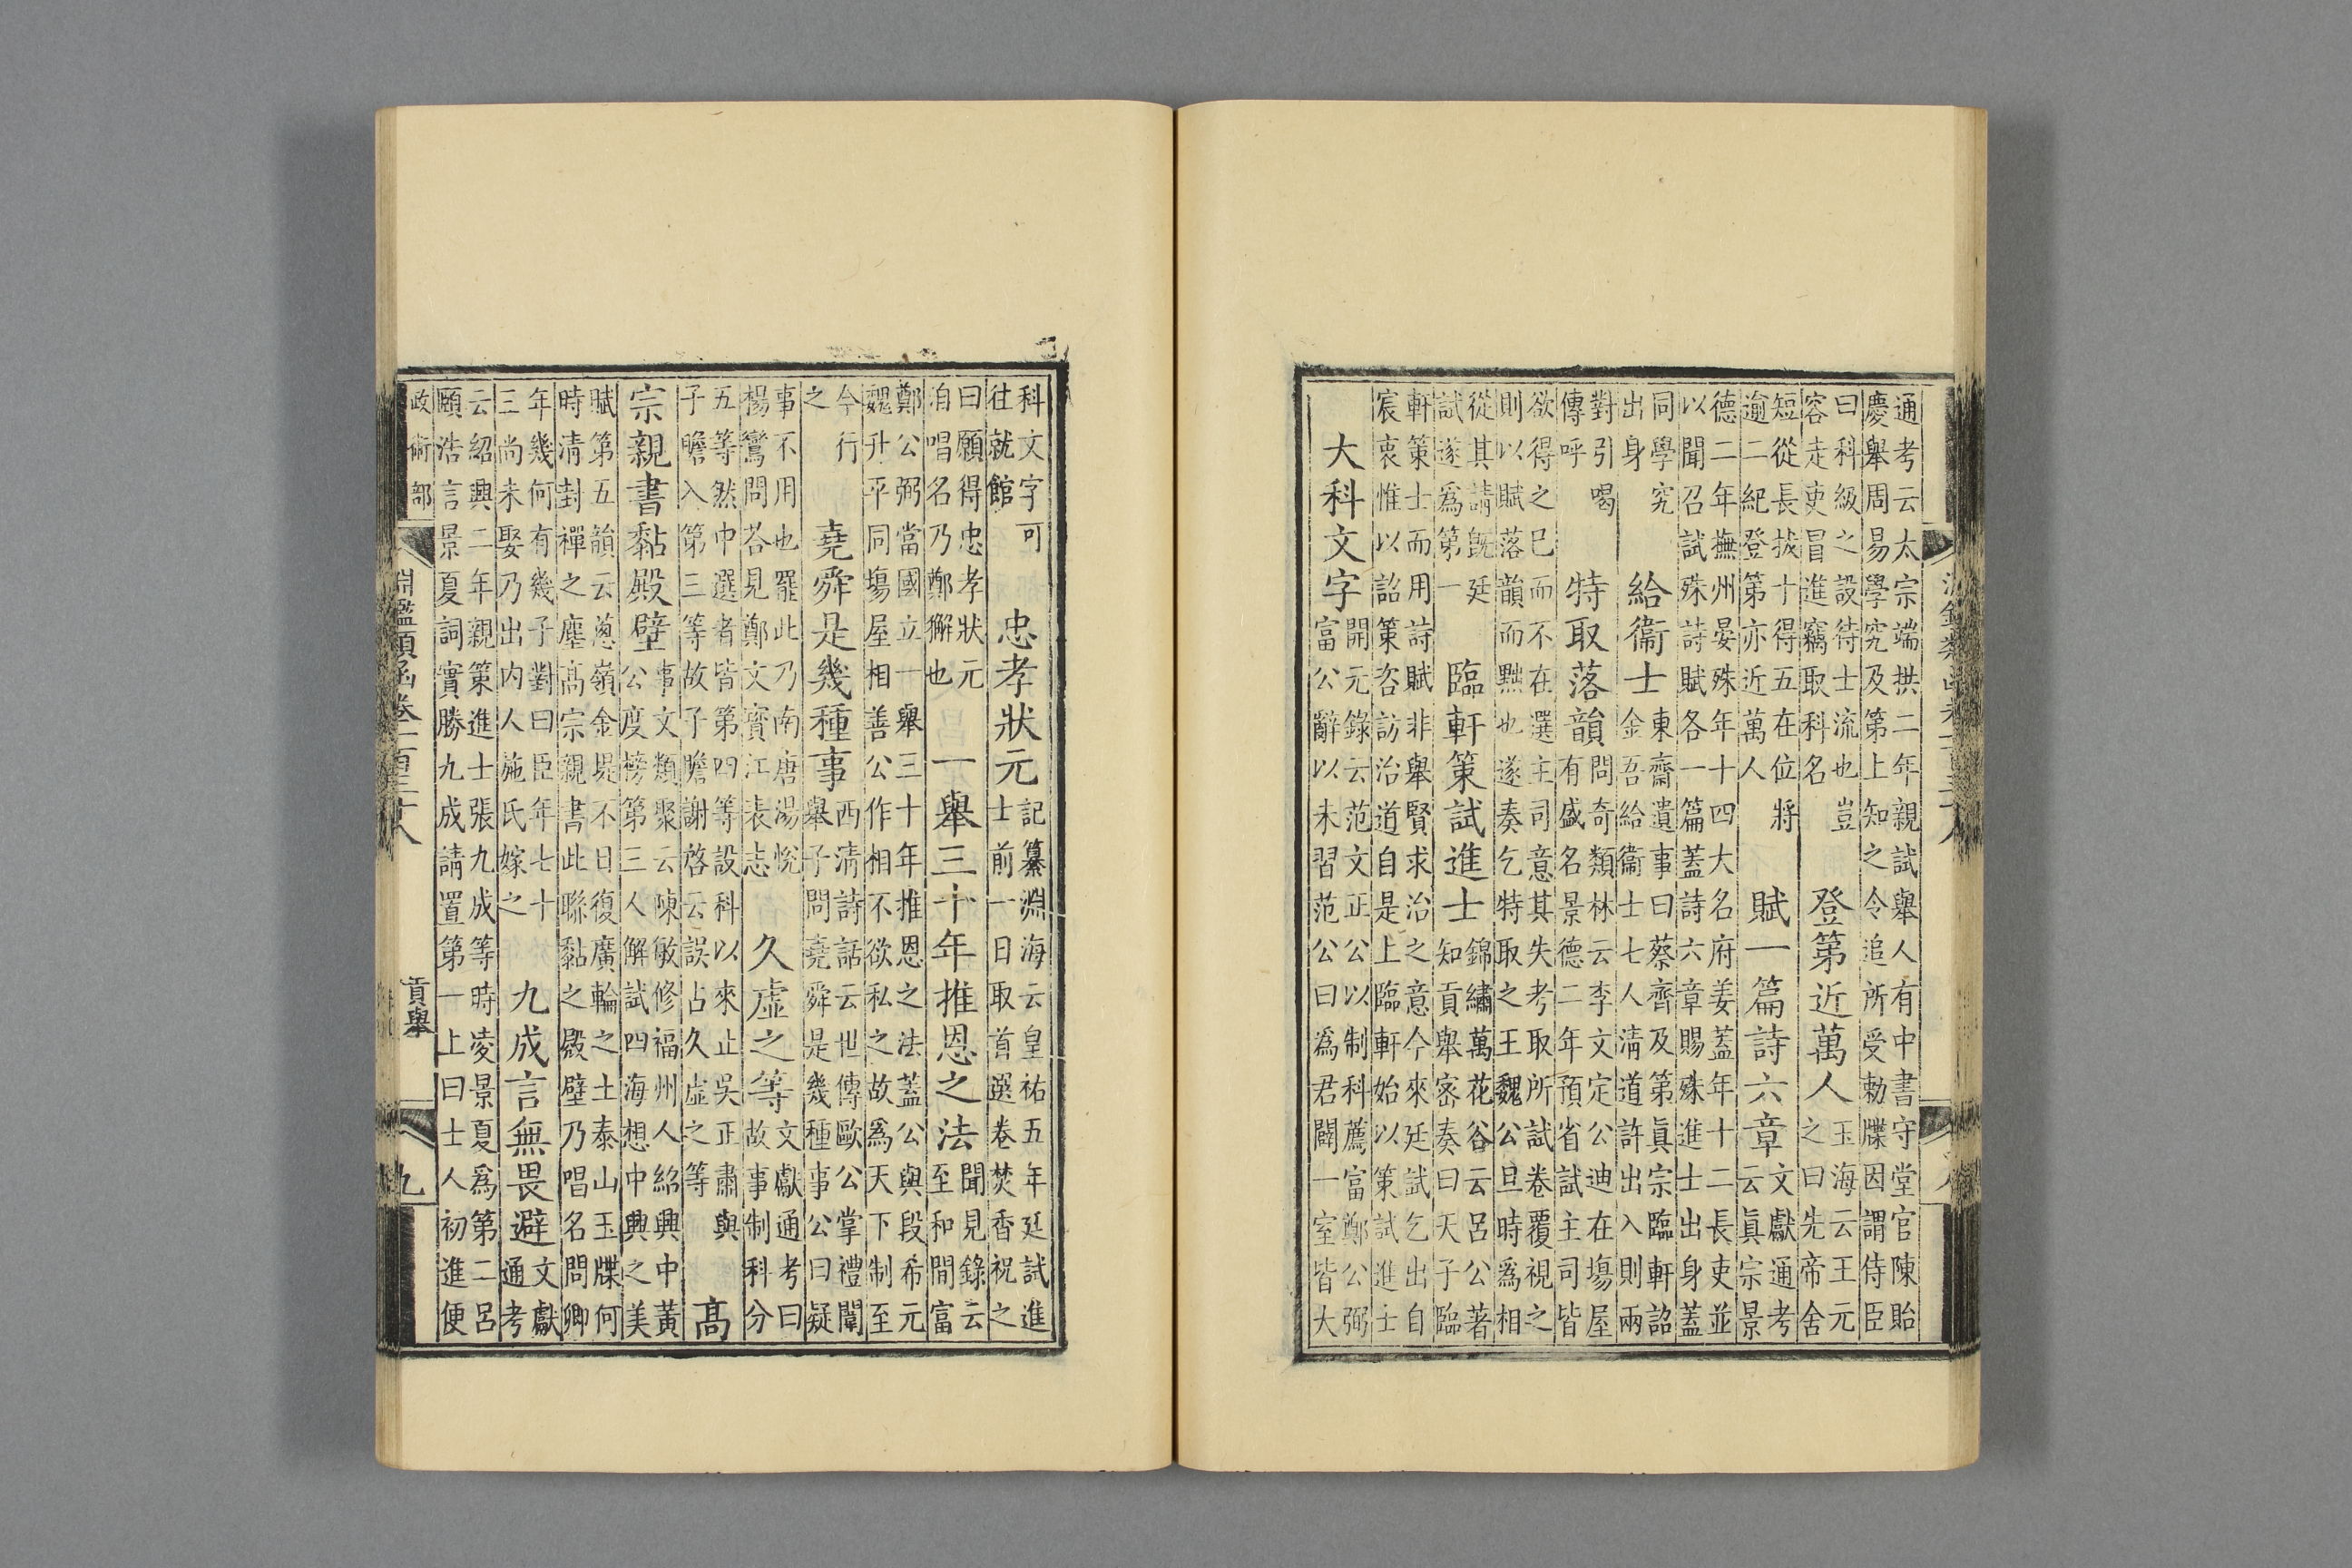 通考云太宗端拱二年親試舉人有中書守堂官陳貽
慶舉周易學究及第上知之令追所受勅牒因謂侍臣
曰科級之設待士流也豈
容走吏冒進竊取科名
登第近萬人
玉海云王元
之曰先帝舍
短從長拔十得五在位將
逾二紀登第亦近萬人
賦一篇詩六章
文獻通考
云眞宗景
德二年撫州晏殊年十四大名府姜蓋年十二長吏並
以聞召試殊詩賦各一篇蓋詩六章賜殊進士出身蓋
同學究
出身
給衞士
東齋遺事曰蔡齊及第眞宗臨軒詔
金吾給衞士七人清道許出入則兩
對引喝
傳呼
特取落韻
問奇類林云李文定公迪在塲屋
有盛名景德二年預省試主司皆
欲得之已而不在選主司意其失考取所試卷覆視之
則以賦落韻而黜也遂奏乞特取之王魏公旦時爲相
從其請旣廷
試遂爲第一
臨軒策試進士
錦繡萬花谷云呂公著
知貢舉宻奏曰天子臨
軒策士而用詩賦非舉賢求治之意今來廷試乞出自
宸衷惟以詔策咨訪治道自是上臨軒始以策試進士
大科文字
開元錄云范文正公以制科薦富鄭公弼
富公辭以未習范公曰爲君闢一室皆大
科文字可
往就館
忠孝狀元
記纂淵海云皇祐五年廷試進
士前一日取首選卷焚香祝之
曰願得忠孝狀元
洎唱名乃鄭獬也
一舉三十年推恩之法
聞見錄云
至和間富
鄭公弼當國立一舉三十年推恩之法蓋公與段希元
魏升平同塲屋相善公作相不欲私之故爲天下制至
今行
之
堯舜是幾種事
西清詩話云世傳歐公掌禮闈
舉子問堯舜是幾種事公曰疑
事不用也罷此乃南唐湯悅
楊鸞問荅見鄭文寶江表志
久虛之等
文獻通考曰
故事制科分
五等然中選者皆第四等設科以來止吳正肅與
子瞻入第三等故子瞻謝啓云誤占久虛之等
高
宗親書黏殿壁
事文類聚云陳敏修福州人紹興中黃
公度榜第三人解試四海想中興之美
賦第五韻云蔥嶺金堤不日復廣輪之土泰山玉牒何
時清封禪之塵高宗親書此聯黏之殿壁乃唱名問卿
年幾何有幾子對曰臣年七十
三尚未娶乃出内人施氏嫁之
九成言無畏避
文獻
通考
云紹興二年親策進士張九成等時凌景夏爲第二呂
頤浩言景夏詞實勝九成請置第一上曰士人初進便
政術部
淵鑑類函卷一百三十八
貢舉
九